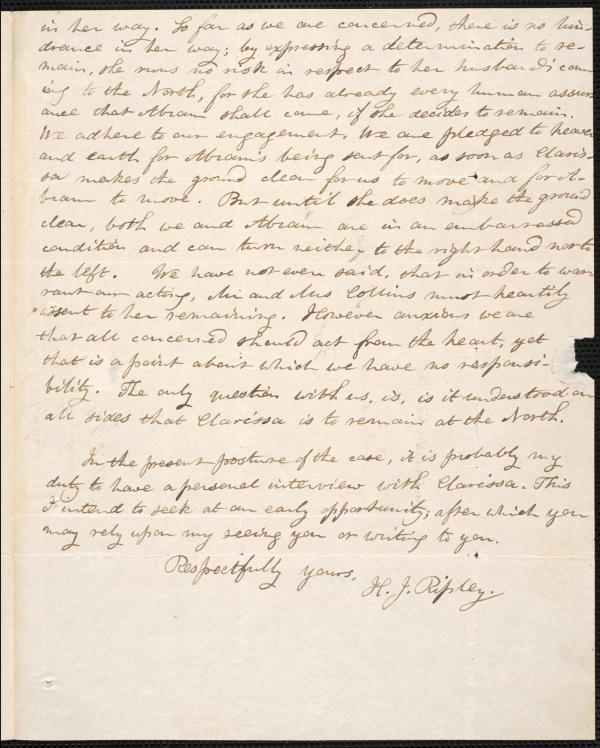 in her way. So far as we are concerned, there is no hin-
drance in her way; by expressing a determination to re-
main, she runs no risk in respect to her husband's com-
ing to the North, for she has already every human assur-
ance that Abram shall come, if she decides to remain.
We adhere to our engagement. We are pledged to heaven
and earth for Abram's being sent for, as soon as Claris-
sa makes the ground clear for us to move and for A-
bram to move. But until she does make the ground
clear, both we and Abram are in an embarrassed
condition and can turn neither to the right hand nor to
the left. We have not even said, that in order to war-
rant our acting, Mr and Mrs Collins must heartily
assent to her remaining. However anxious we are
that all concerned should act from the heart, yet
that is a point about which we have no responsi-
bility. The only question with us, is, is it understood on
all sides that Clarissa is to remain at the North.
In the present posture of the case, it is probably my
duty to have a personal interview with Clarissa. This
I intend to seek at an early opportunity; after which you
may rely upon my seeing you or writing to you.
Respectfully yours,
H. J. Ripley.